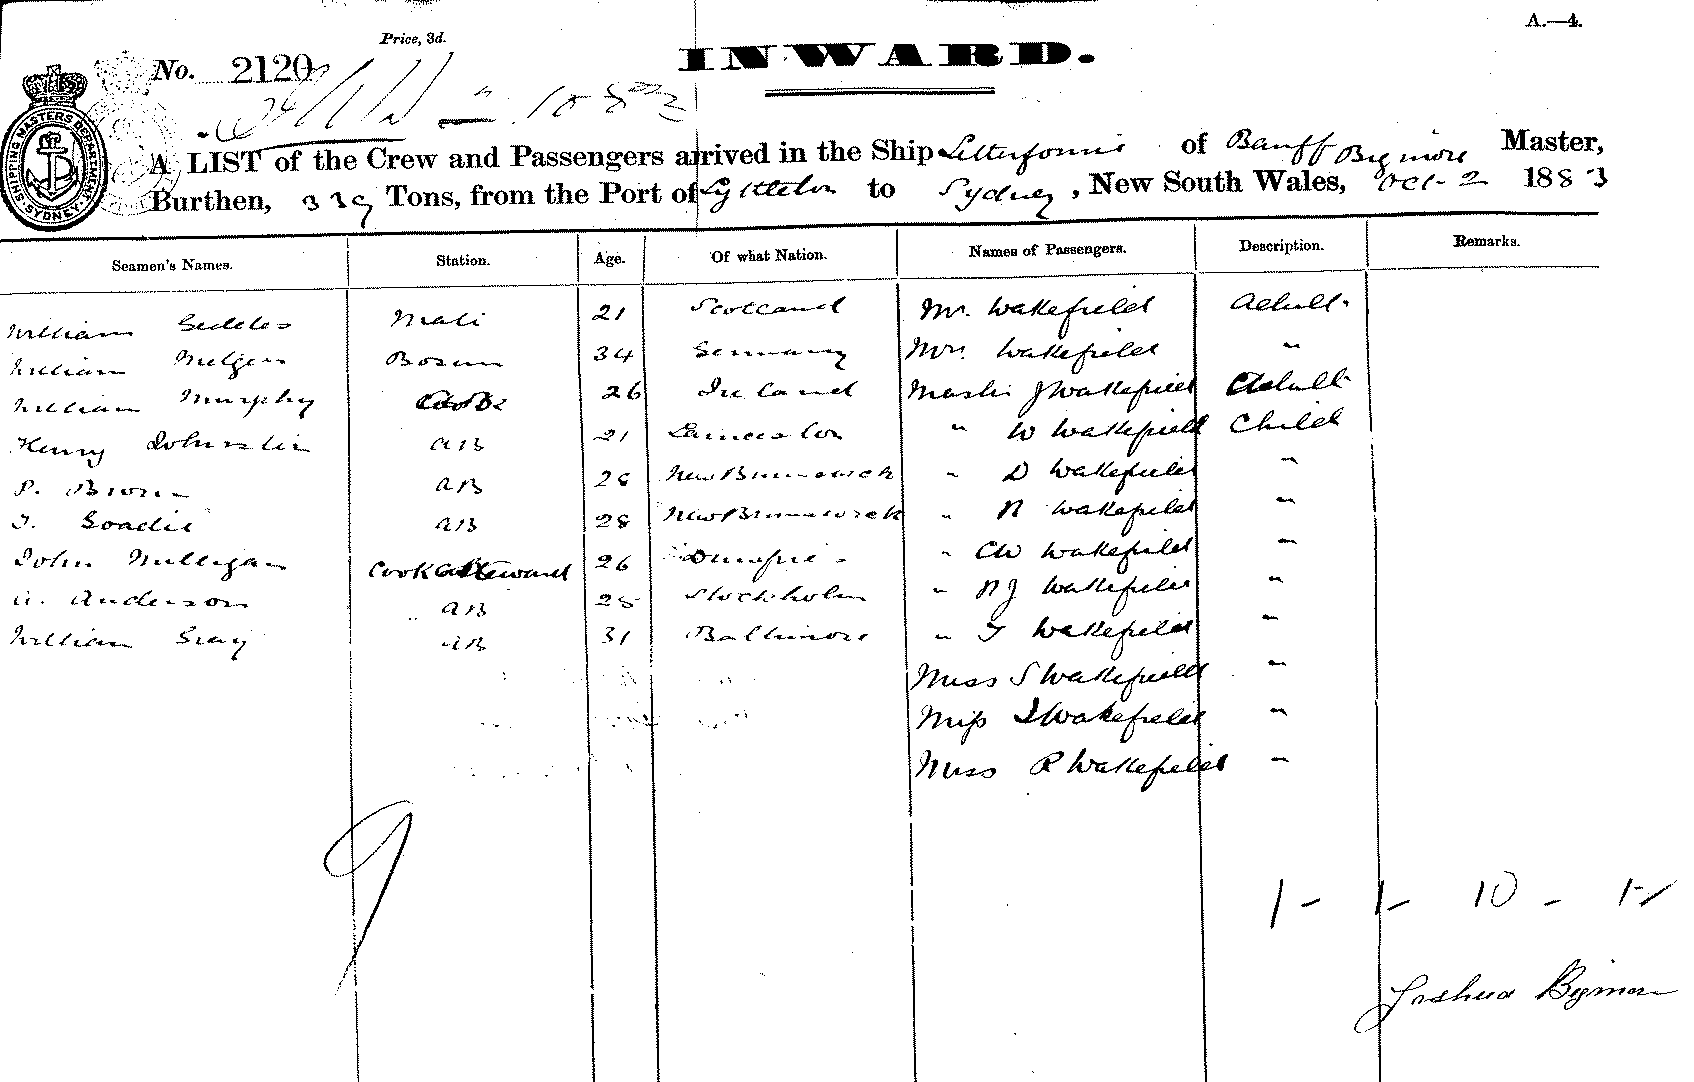 A.—4.
Price, 3d.
No. 2120
INWARD.
SHIPPING MASTERS DEPARTMENT SYDNEY
A LIST of the Crew and Passengers arrived in the Ship of Banff Bigmore Master,
Burthen, 339 Tons, from the Port of Lyttelton to Sydney, New South Wales, Oct 2 1883
Seamen's Names. Station. Age. Of what Nation. Names of Passengers. Description. Remarks.
William Geddes Mate 21 Scotland Mr. Wakefield Adult
William Bosun 34 Germany Mrs. Wakefield "
William Murphy 26 Ireland Master J Wakefield Adult
Henry Johnston AB 21 " W Wakefield Child
P. Brown AB 28 New Brunswick " D Wakefield "
T. Goadie AB 28 New Brunswick " R Wakefield "
John Milligan Cook & Steward 26 " CW Wakefield "
A. Anderson AB 28 Stockholm " RJ Wakefield "
William Gray AB 31 Baltimore " T Wakefield "
Miss S Wakefield "
Miss I Wakefield "
Miss R Wakefield "
9
1 - 1 - 10 - 12
Joshua Bigmore